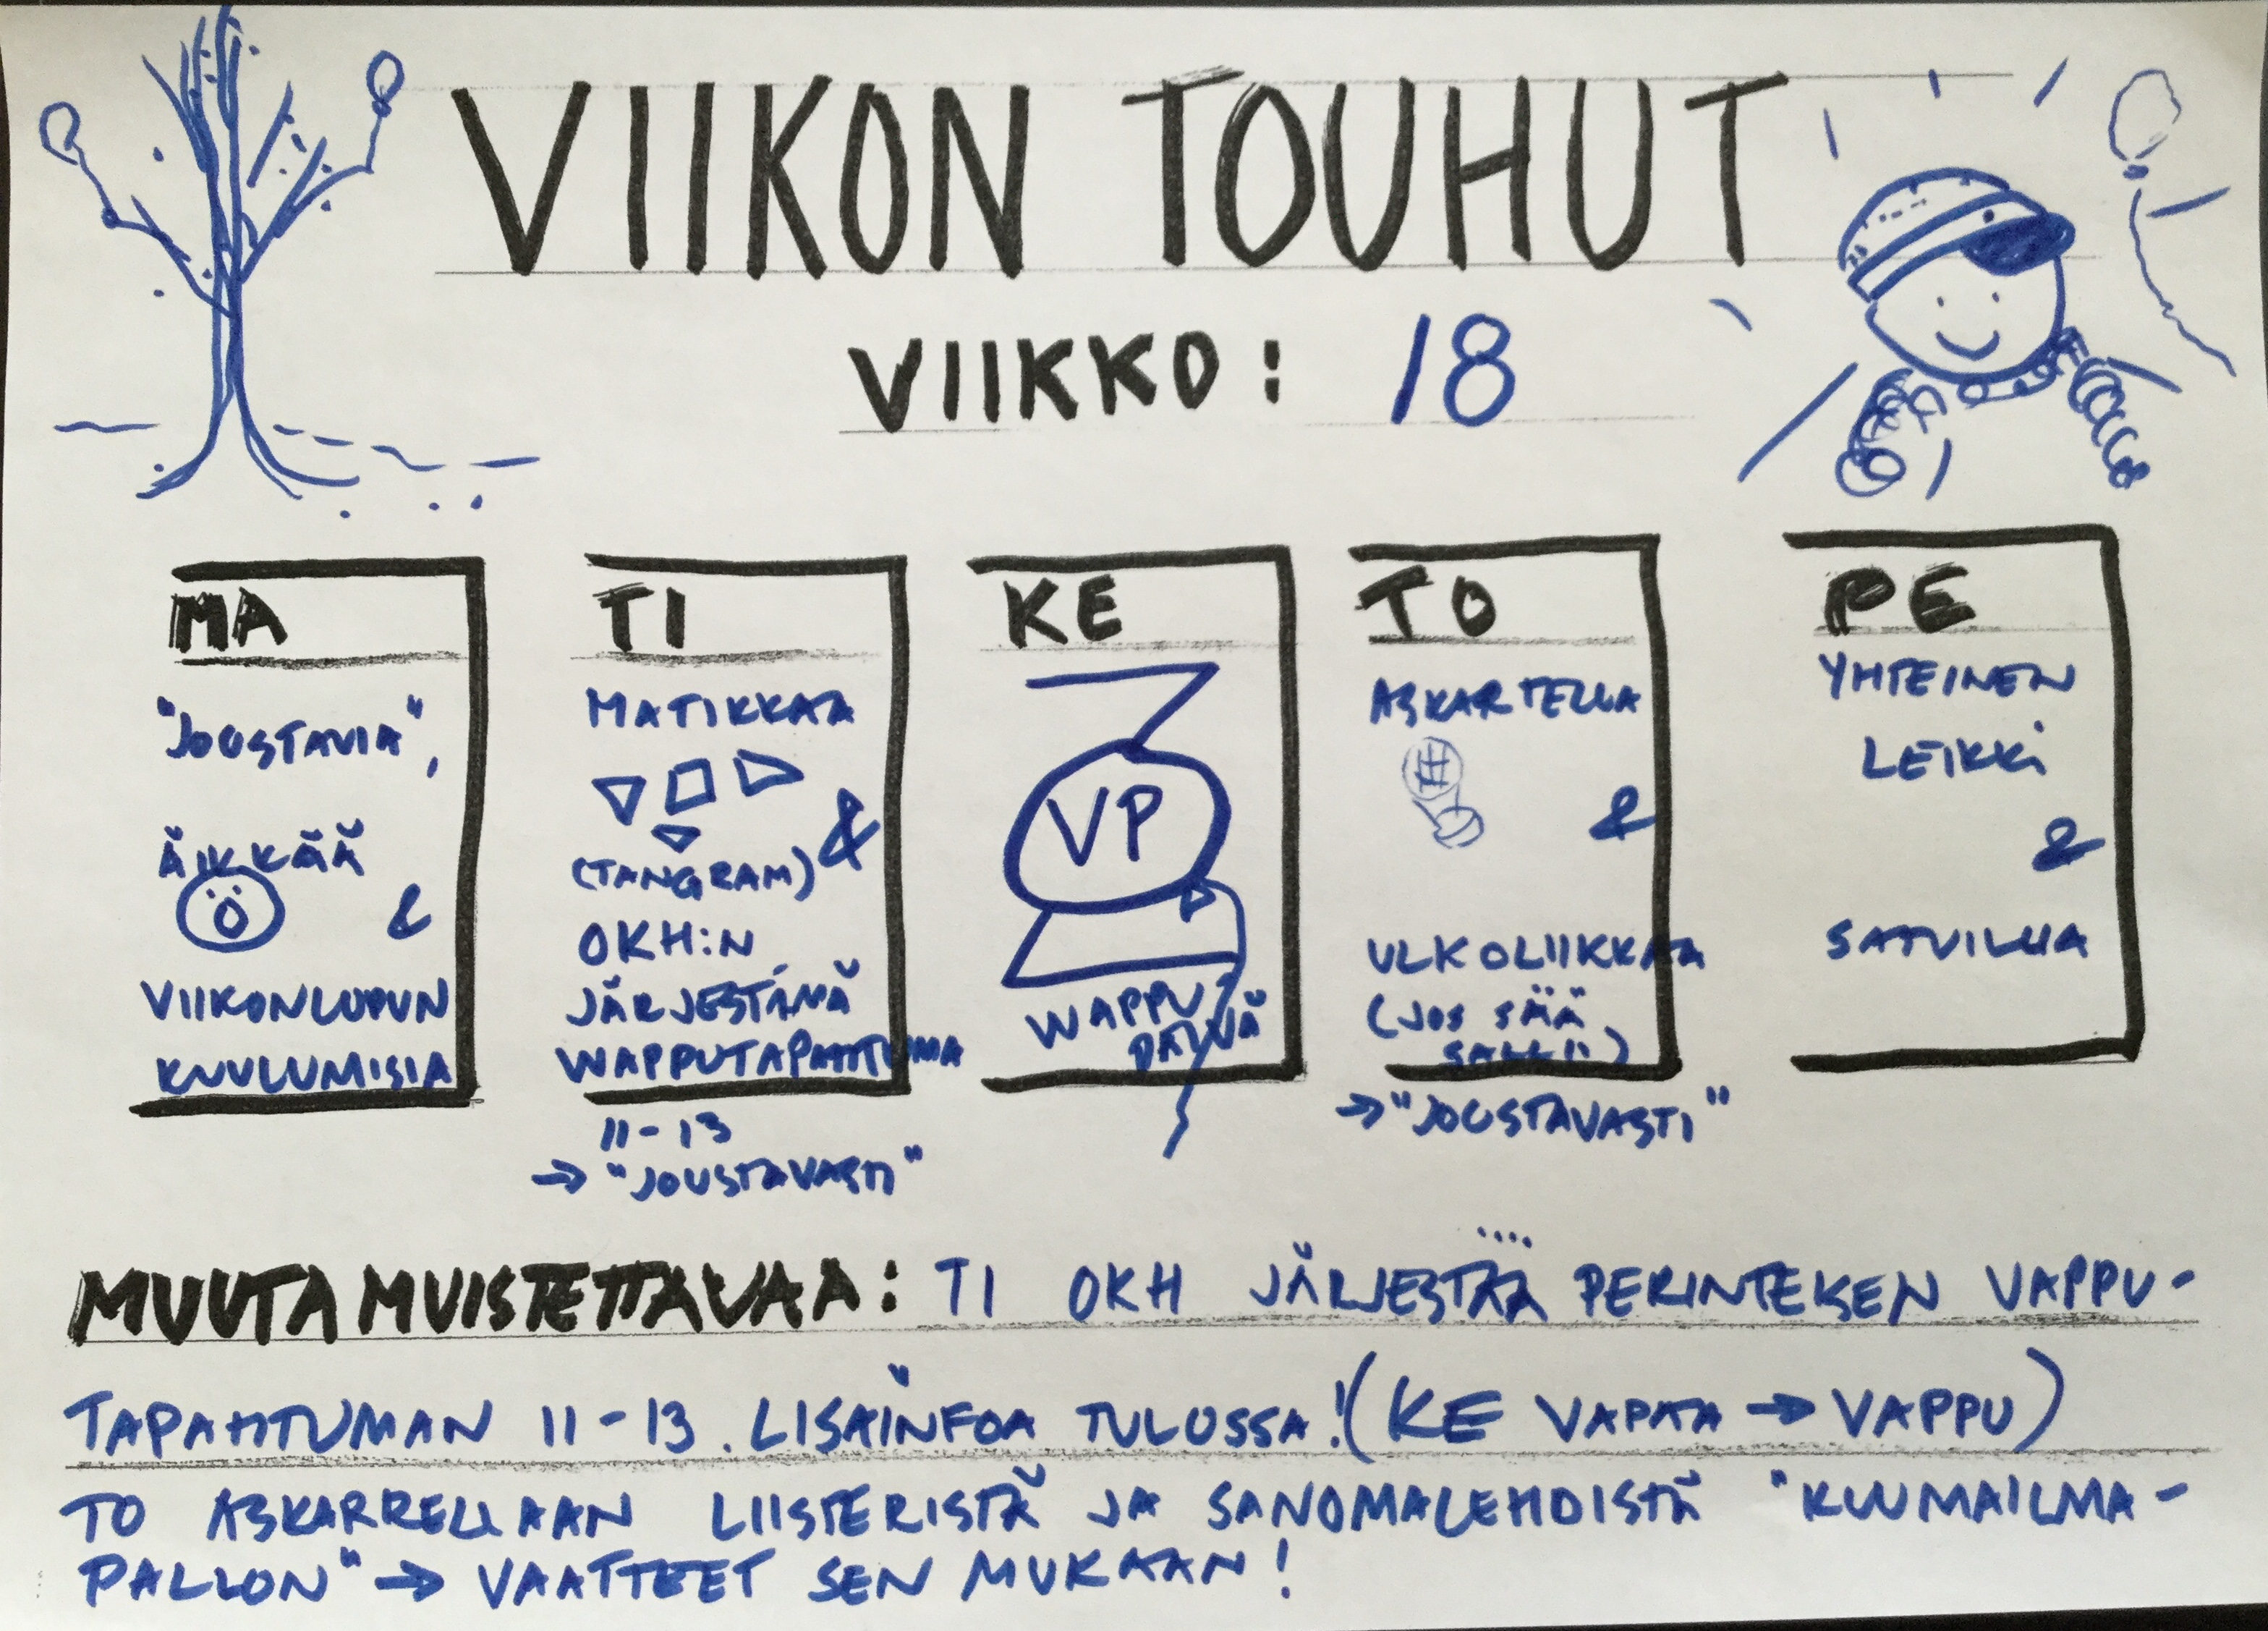 VIIKON TOUHUT
VIIKKO: 18
MA
"JOUSTAVIA",
ÄIKKÄÄ
&
VIIKONLUPUN
KUULUMISIA
TI
MATIKKAA
&
(TANGRAM)
OKH:N
JÄRJESTÄMÄ
WAPPUTAPAHTUMA
11-13
→ "JOUSTAVASTI"
KE
VP
WAPPU
PÄIVÄ
TO
ASKARTELUA
&
ULKOLIIKKAA
(JOS SÄÄ
SALLII)
→ "JOUSTAVASTI"
PE
YHTEINEN
LEIKKI
&
SATUILUA
MUUTA MUISTETTAVAA: TI OKH JÄRJESTÄÄ PERINTEISEN VAPPU-
TAPAHTUMAN 11-13. LISÄINFOA TULOSSA! (KE VAPAA → VAPPU)
TO ASKARRELLAAN LIISTERISTÄ JA SANOMALEHDISTÄ "KUUMAILMA-
PALLON" → VAATTEET SEN MUKAAN!